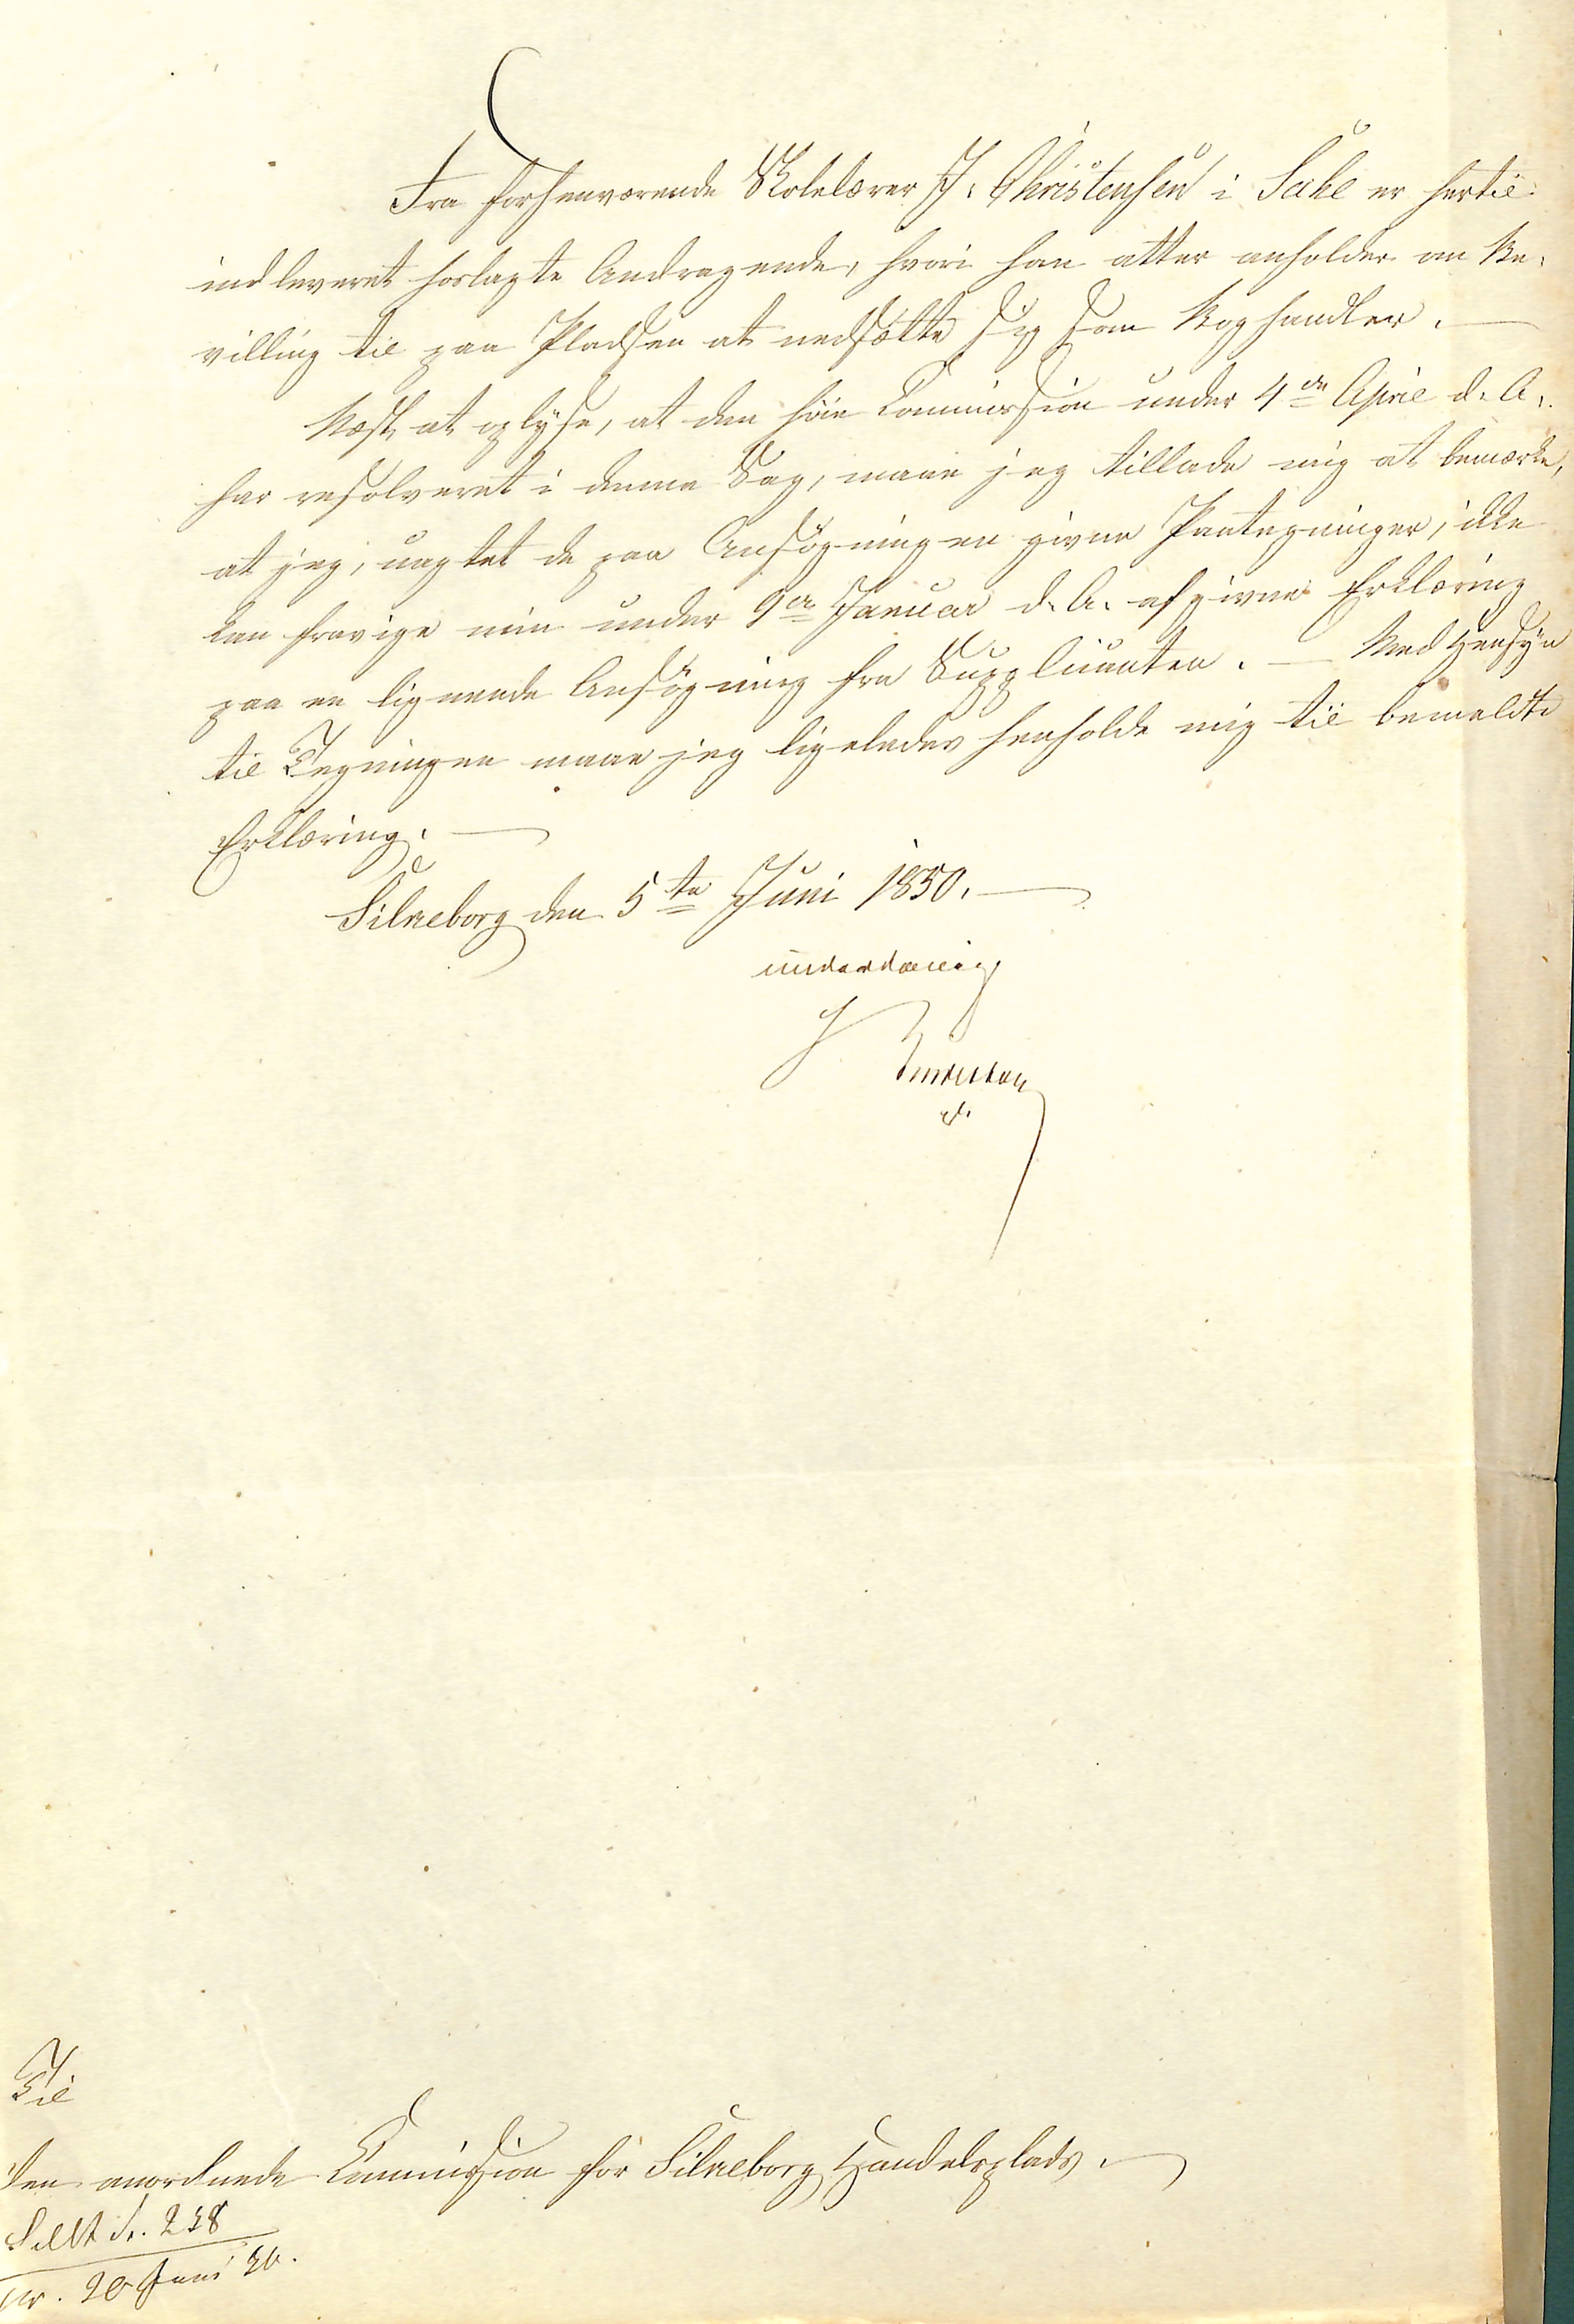 Fra forhenværende Skolelærer J. Christensen i Sahl er hertil
indleveret hoslagte Andragende, hvori han atter anholder om Be-
villing til paa Pladsen at nedsætte sig som Boghandler. —
Næst at oplyse, at den høie Commission under 4de April d. A.
har resolveret i denne Sag, maae jeg tillade mig at bemærke,
at jeg, uagtet de paa Ansøgningen givne Paategninger, ikke
kan fravige min under 9de Januar d. A. afgivne Erklæring
paa en lignende Ansøgning fra Supplicanten. — Med Hensyn
til Tegningen maae jeg ligeledes henholde mig til bemeldte
Erklæring. —
Silkeborg den 5te Juni 1850. —
underdanig
Til
den anordnede Commission for Silkeborg Handelsplads. —
238
20 Juni 50.